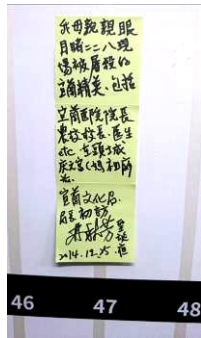 我母親親眼
目睹二二八現
場被屠殺的
宜蘭精英.包括
宜蘭醫院院長
農校校長.醫生
etc 在頭城
慶元宮(媽祖廟
宜蘭文化局.
局長初訪
2014.12.25
46
47
48